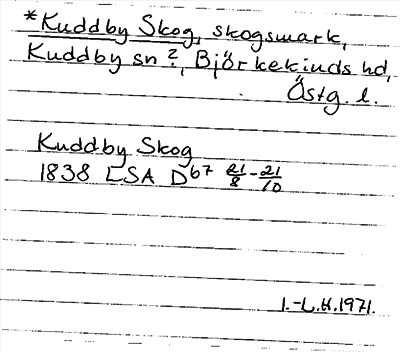 *Kuddby Skog, skogsmark,
Kuddby sn ?, Björkekinds hd,
Östg. l.
Kuddby Skog
1838 LSA D67 21/8-21/10
I.-L.H. 1971.